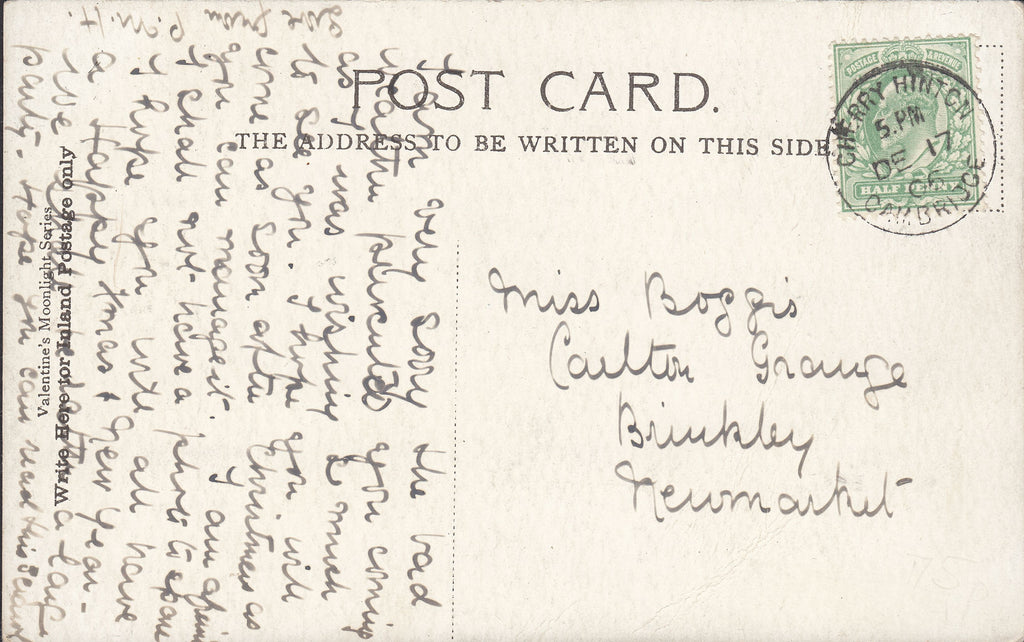 POST CARD.
THE ADDRESS TO BE WRITTEN ON THIS SIDE
POSTAGE REVENUE
HALF PENNY
CHERRY HINTON
5.PM
DE 17
CAMBRIDGE
Miss Boggis
Carlton Grange
Brinkley
Newmarket
Valentine's Moonlight Series
Write Here for Inland Postage only
I am very sorry the bad
weather prevented you coming
as I was wishing
to see you. I hope you will
come as soon after Christmas as
you can manage it. I am
I shall not have a photo to spare
I hope you will all have
a Happy Xmas & New Year -
We a large
party - hope you can read this
Love from P.M.H